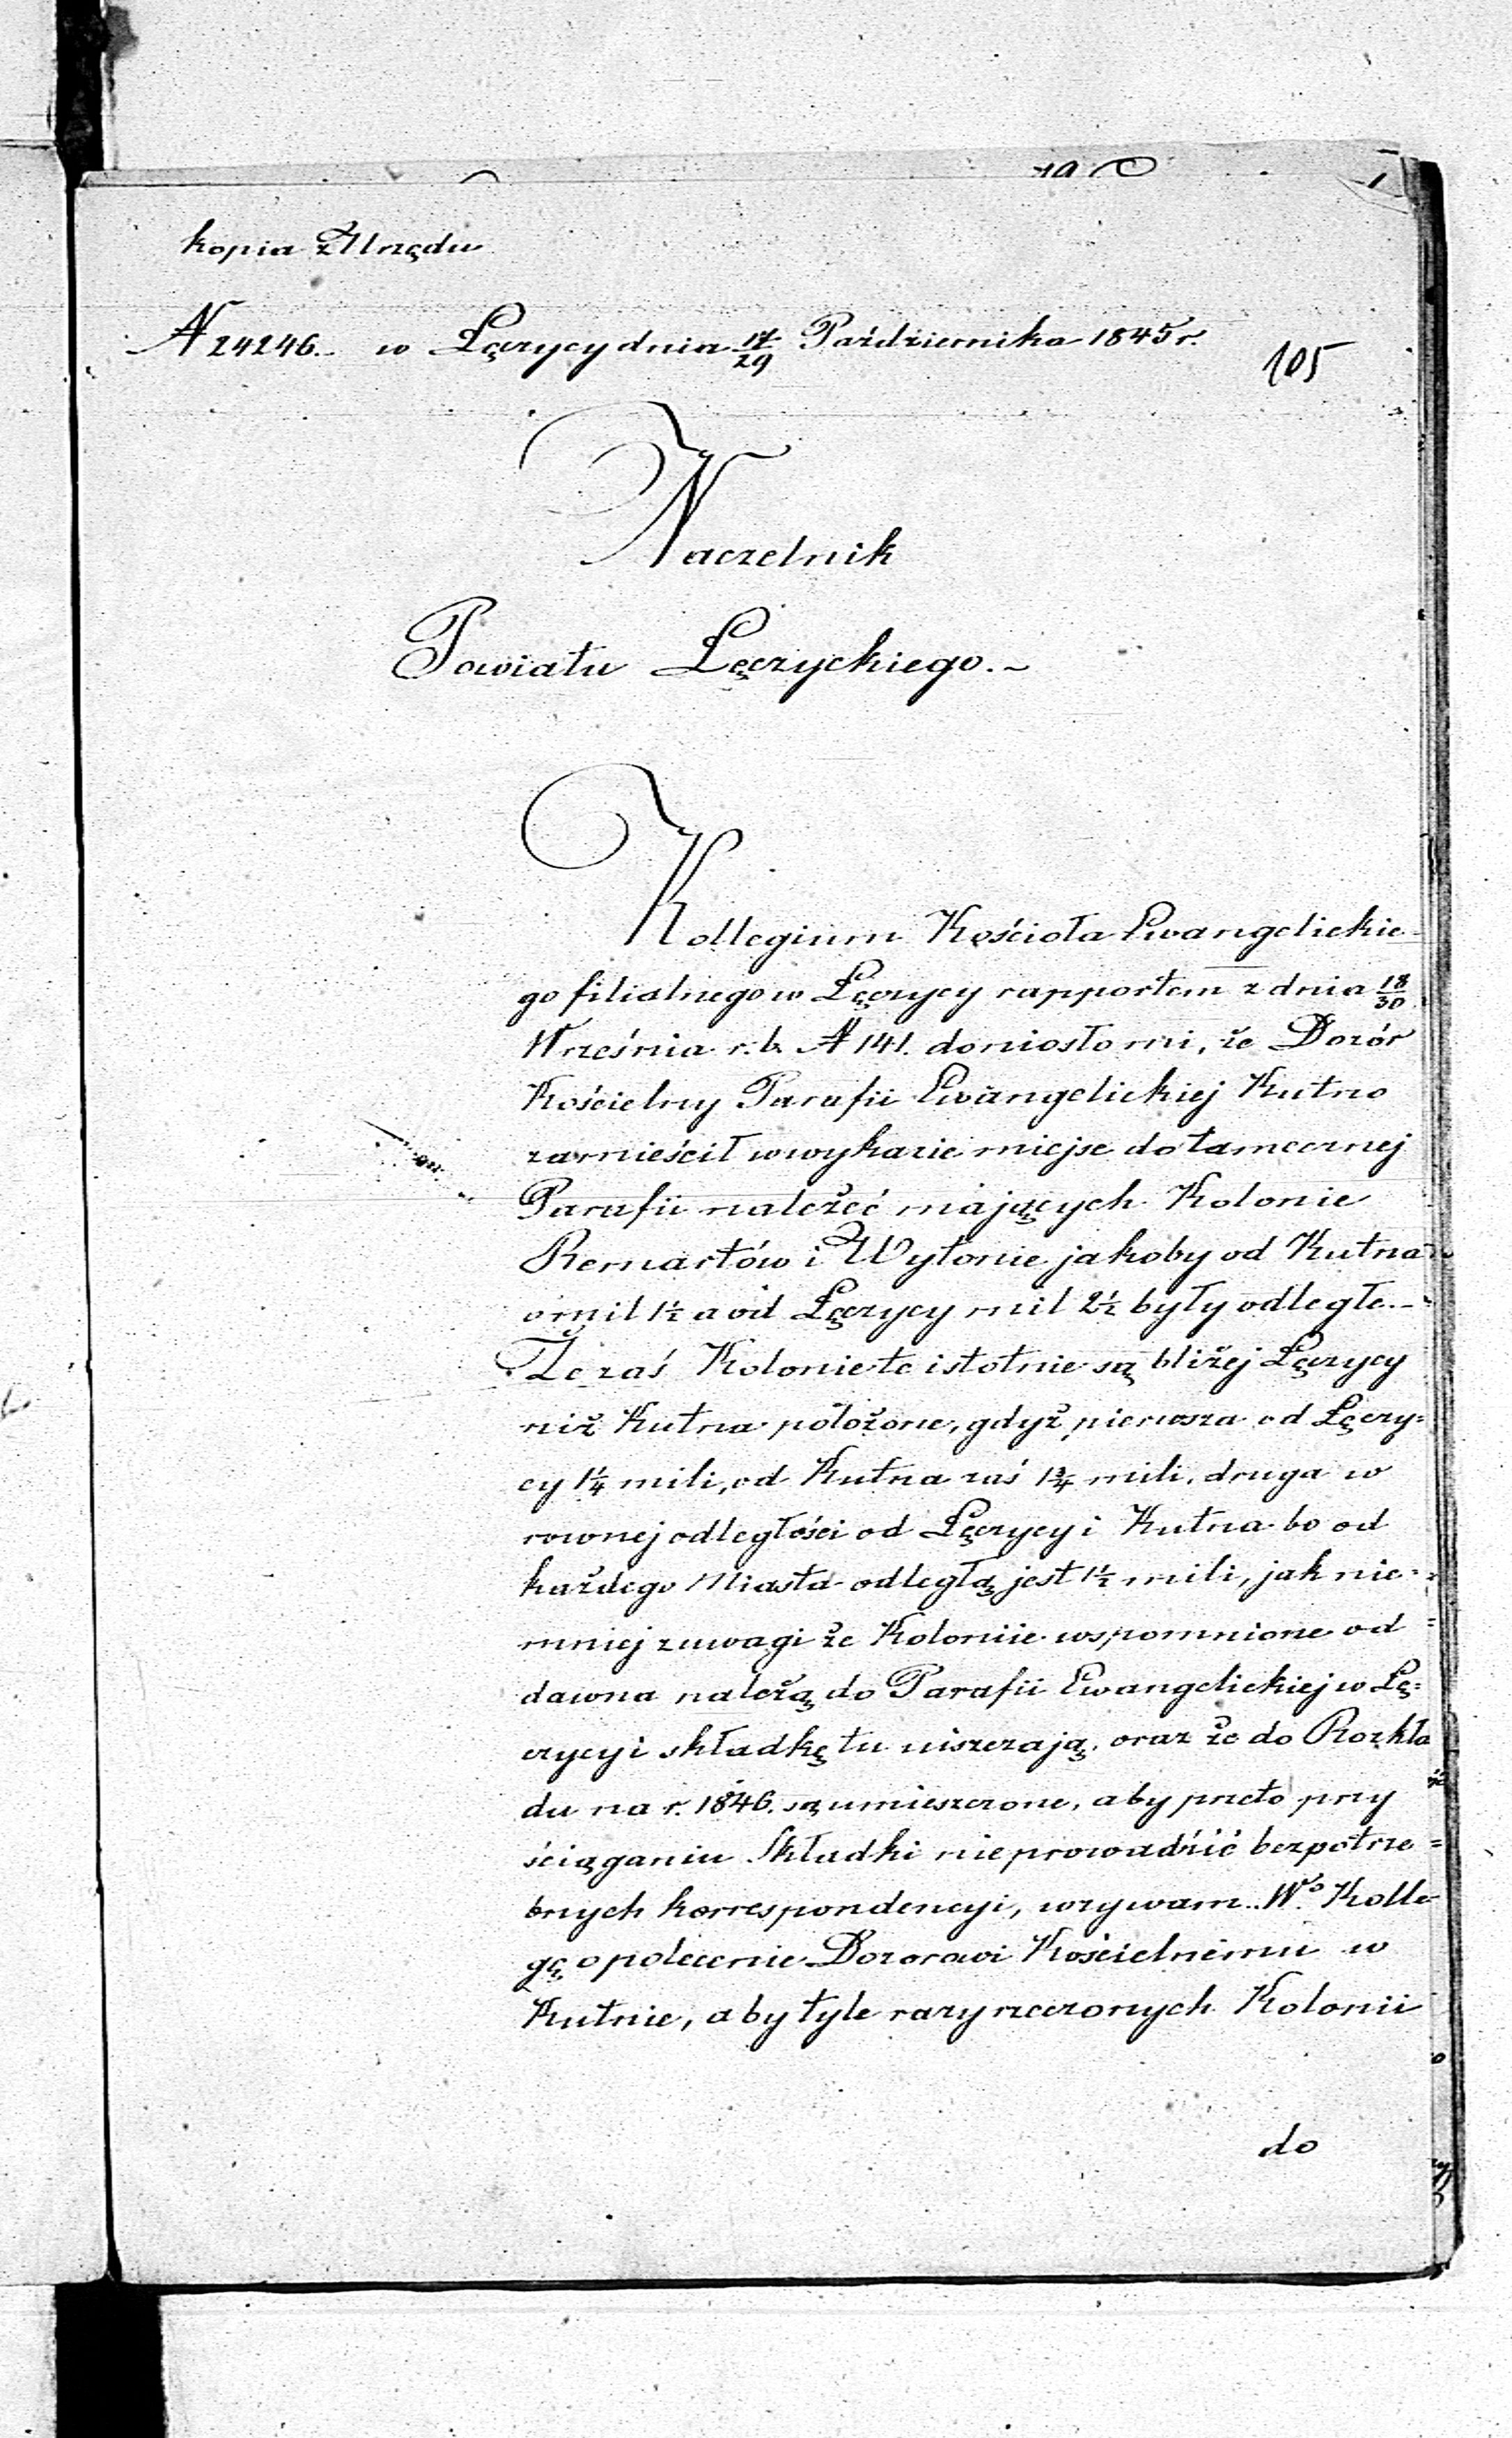 kopia z Urzędu
N 24246. w Łęczycy dnia 17/29 Października 1845 r.
105
Naczelnik
Powiatu Łęczyckiego.
Kollegium Kościoła Ewangelickie-
go filialnego w Łęczycy rapportem z dnia 18/30
Września r.b. N 141. doniosło mi, że Dozór
Kościelny Parafii Ewangelickiej Kutno
zamieścił w wykazie miejsc do tamecznej
Parafii należeć mających Kolonie
Remartów i Wytonie jakoby od Kutna
o mil 1½ a od Łęczycy mil 2½ były odległe.-
Że zaś Kolonie te istotnie są bliżej Łęczycy
niż Kutna położone, gdyż pierwsza od Łęczy=
cy 1¼ mili, od Kutna zaś 1¾ mili, druga w
rownej odległości od Łęczycy i Kutna bo od
każdego Miasta odległą jest 1½ mili, jak nie-
mniej z uwagi że Koloniie wspomnione od
dawna należą do Parafii Ewangelickiej w Łę=
czycy i składkę tu uiszczają, oraz że do Rozkła
du na r. 1846. są umieszczone, aby przeto przy
ściąganiu Składki nie prowadzić bezpotrze=
bnych korrespondencyi, wzywam W° Kolle-
gę o polecenie Dozorowi Kościelnemu w
Kutnie, aby tyle razy rzeczonych Kolonii
do